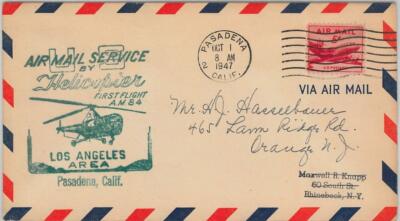 U S
AIR MAIL SERVICE
BY
Helicopter
FIRST FLIGHT
A M 84
LOS ANGELES
AREA
Pasadena, Calif.
PASADENA
2
OCT 1
8 AM
1947
CALIF.
AIR MAIL
VIA AIR MAIL
Mr. H. J. Hasselbauer
465 Ridge Rd.
Orange N. J.
Maxwell R. Knapp
60 South St.
Rhinebeck, N. Y.